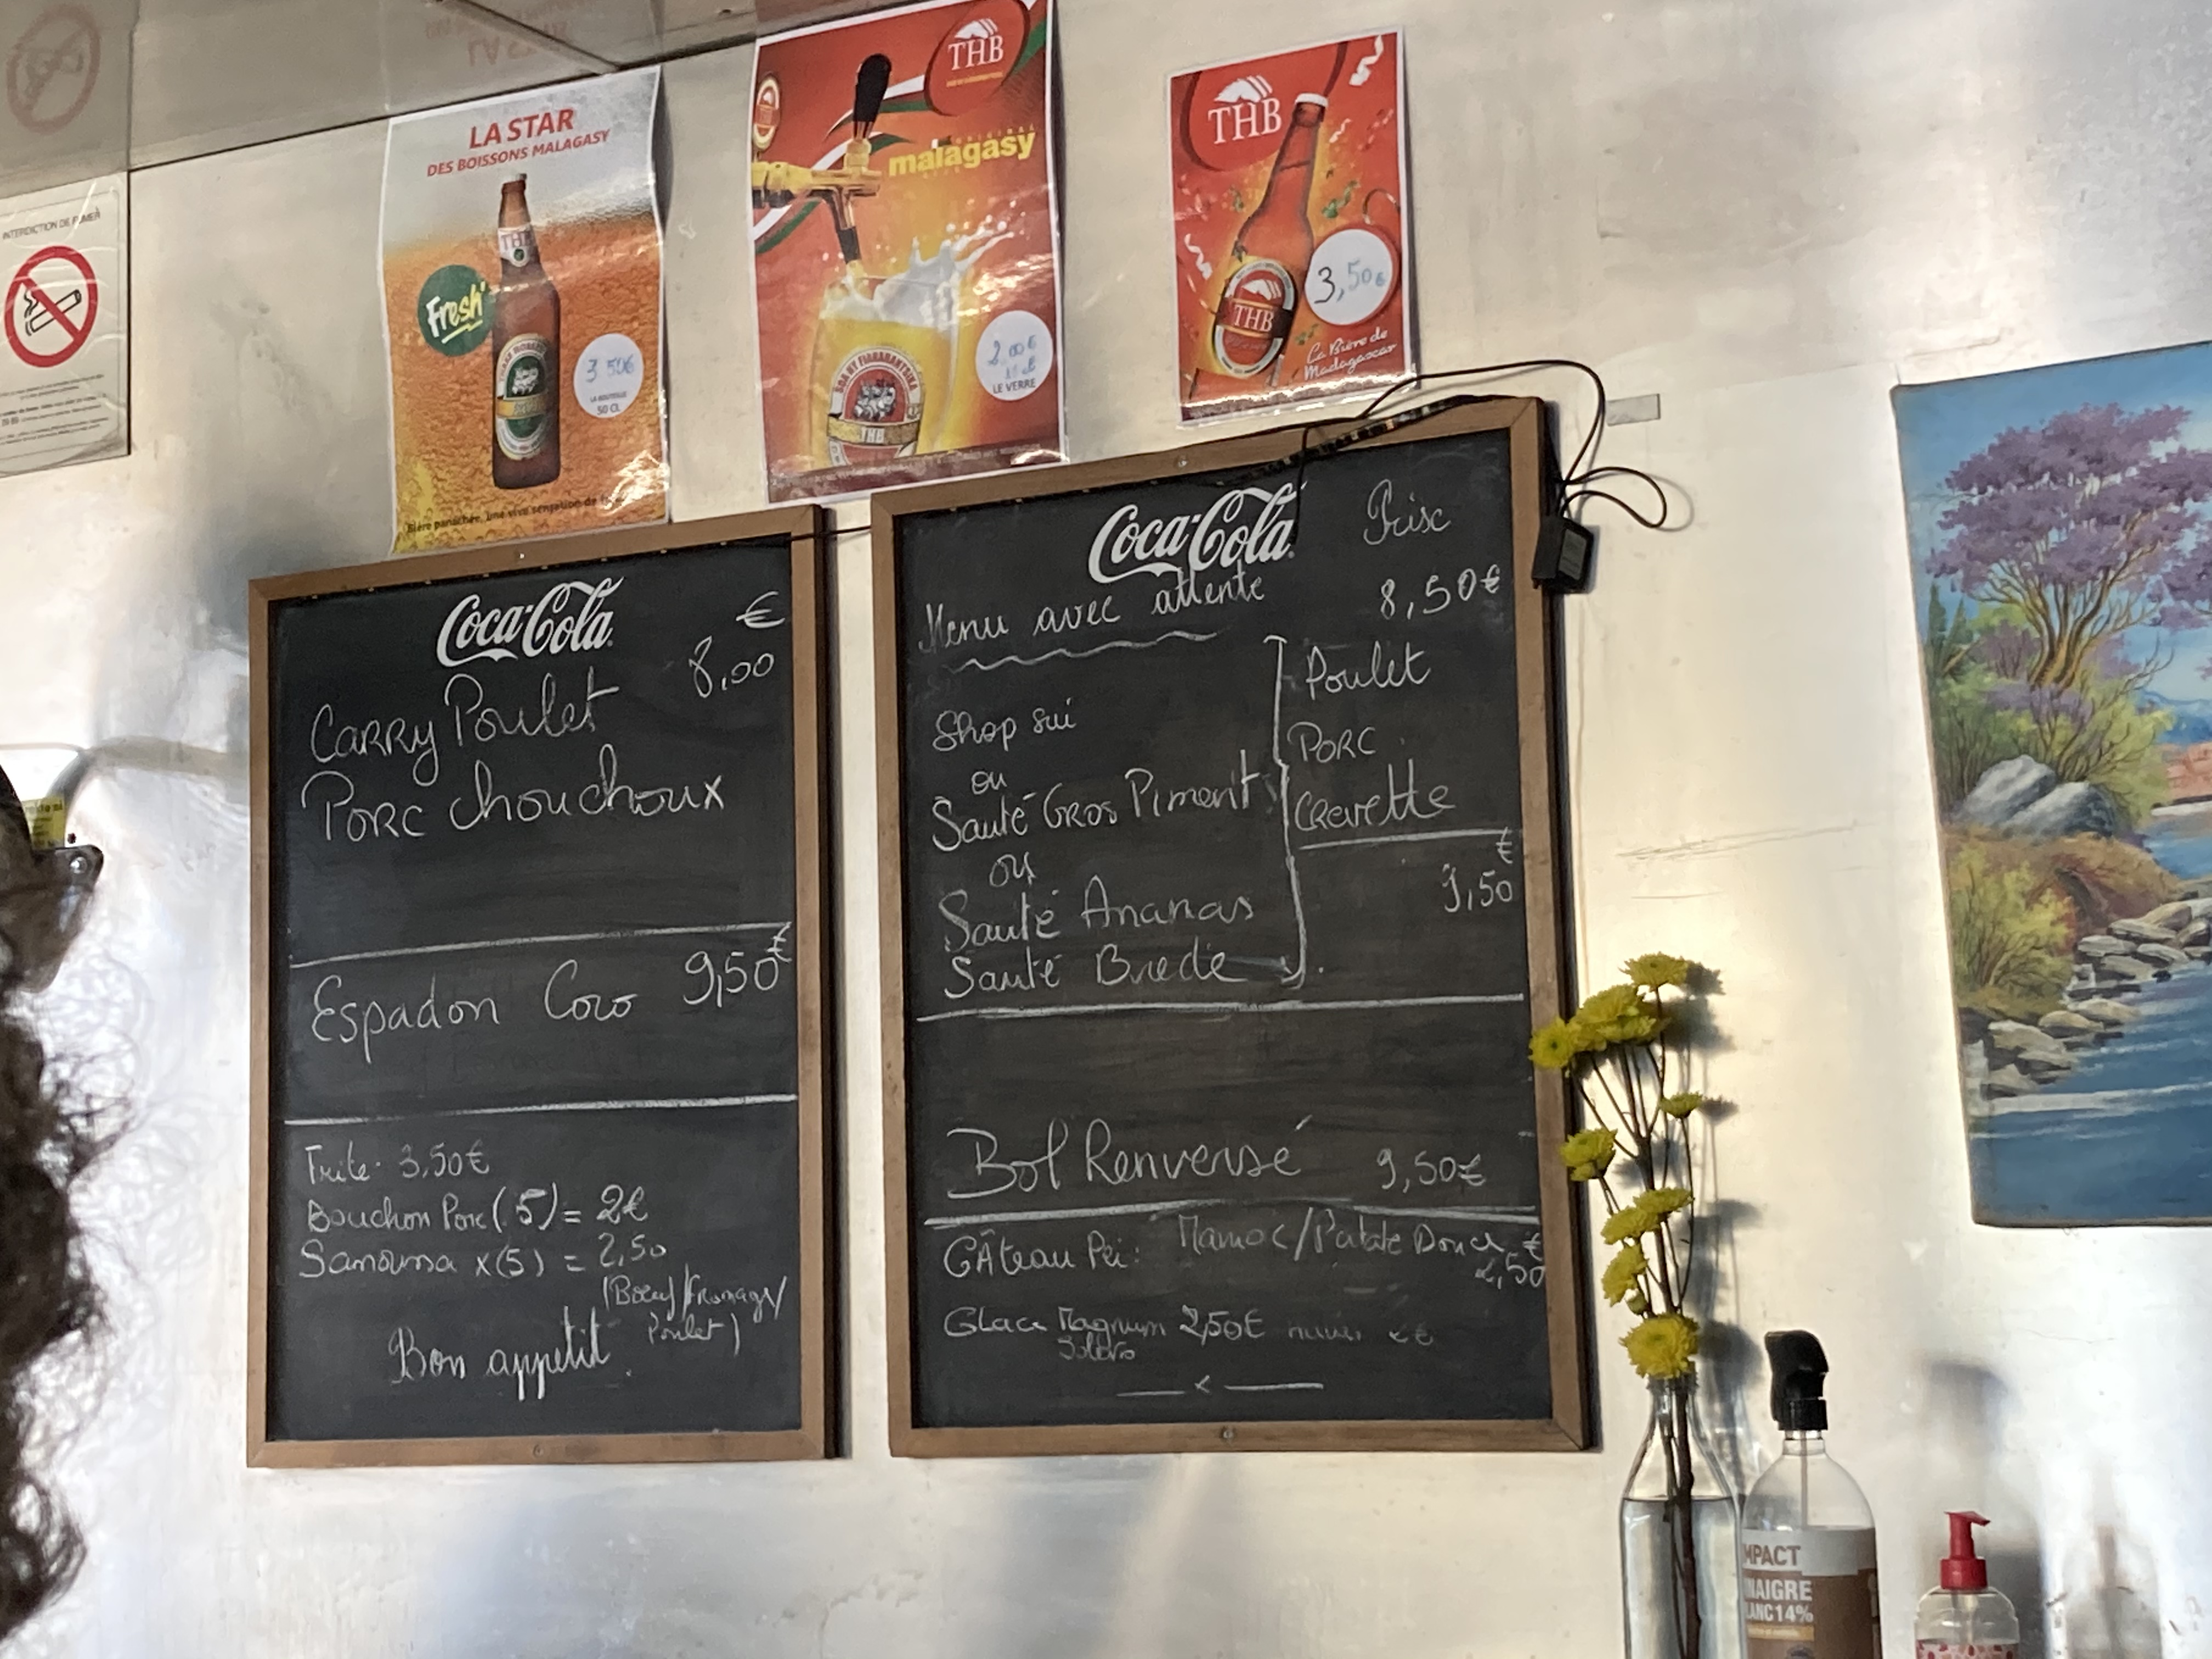 INTERDICTION DE FUMER
LA STAR
DES BOISSONS MALAGASY
Fresh
THB
3 50€
LA BOUTEILLE
50 CL
Bière panachée, une vive sensation de
THB
ORIGINAL
malagasy
SOA NY FIARAHANTSIKA
THB
2,00€
LE VERRE
THB
THB
3,50€
La Bière de
Madagascar
Coca-Cola
€
Carry Poulet 8,00
Porc chouchoux
Espadon Coco 9,50€
Frite. 3,50€
Bouchon Porc (5) = 2€
Samoussa x(5) = 2,50
(Boeuf/fromage/
Poulet)
Bon appetit.
Coca-Cola
Prise
Menu avec attente 8,50€
Shop sui
ou
Sauté Gros Piment
ou
Sauté Ananas
Sauté Brede
Poulet
Porc
Crevette
€
9,50
Bol Renversé 9,50€
Gâteau Péi: Manioc/Patate Douce €
2,50
Glace Magnum 2,50€
Solero
MPACT
NAIGRE
LANC 14%